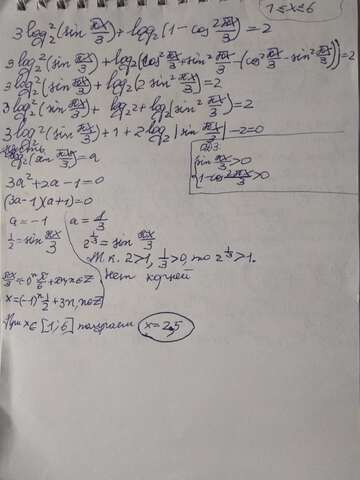 1≤x≤6
3log₂²(sin πx/3) + log₂(1-cos 2πx/3) = 2
3log₂²(sin πx/3) + log₂(cos² πx/3 + sin² πx/3 - (cos² πx/3 - sin² πx/3)) = 2
3log₂²(sin πx/3) + log₂(2 sin² πx/3) = 2
3log₂²(sin πx/3) + log₂2 + log₂(sin² πx/3) = 2
3log₂²(sin πx/3) + 1 + 2log₂|sin πx/3| - 2 = 0
Пусть
log₂(sin πx/3) = a
ОДЗ:
{sin πx/3 > 0
1-cos 2πx/3 > 0
3a²+2a-1=0
(3a-1)(a+1)=0
a=-1 a=1/3
1/2 = sin πx/3 2^(1/3) = sin πx/3
Т.к. 2>1, 1/3>0, то 2^(1/3)>1.
Нет корней
πx/3 = (-1)ⁿ π/6 + πn, n∈Z
x=(-1)ⁿ 1/2 + 3n, n∈Z
При x∈[1;6] получаем x=2,5